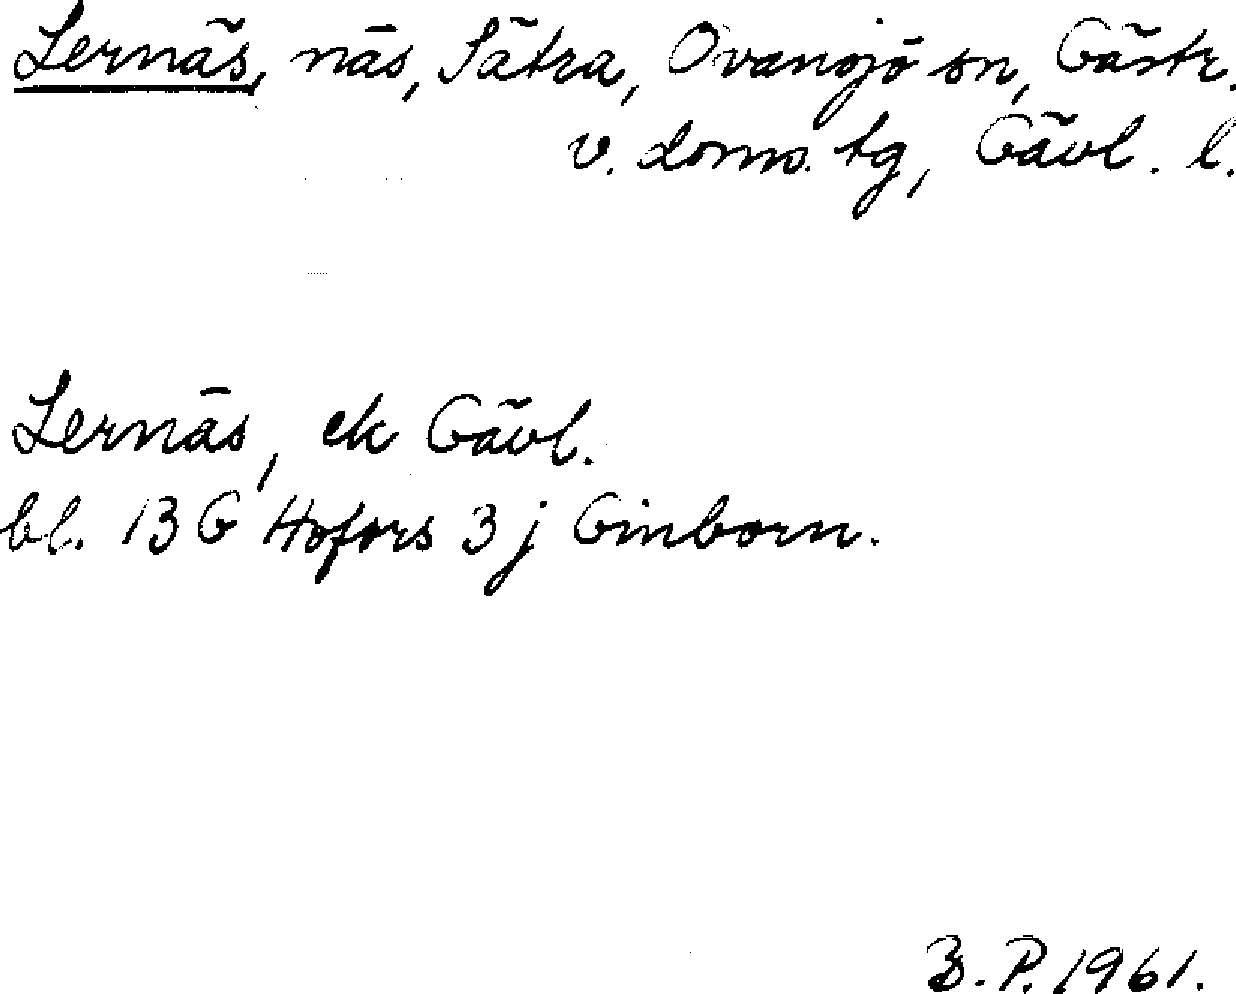 Lernäs, näs, Sätra, Ovansjö sn, Gästr.
v. doms. tg, Gävl. l.
Lernäs, ek Gävl.
bl. 13 G Hofors 3 j Ginborn.
B.P. 1961.